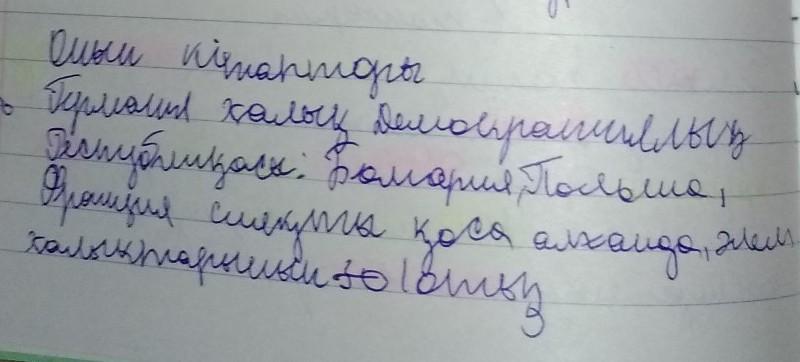 Оның кітаптары
Германия халық Демократиялық
Республикасы: Болгария, Польша,
Франция сияқты қоса алханда, әлем
халықтарының 30